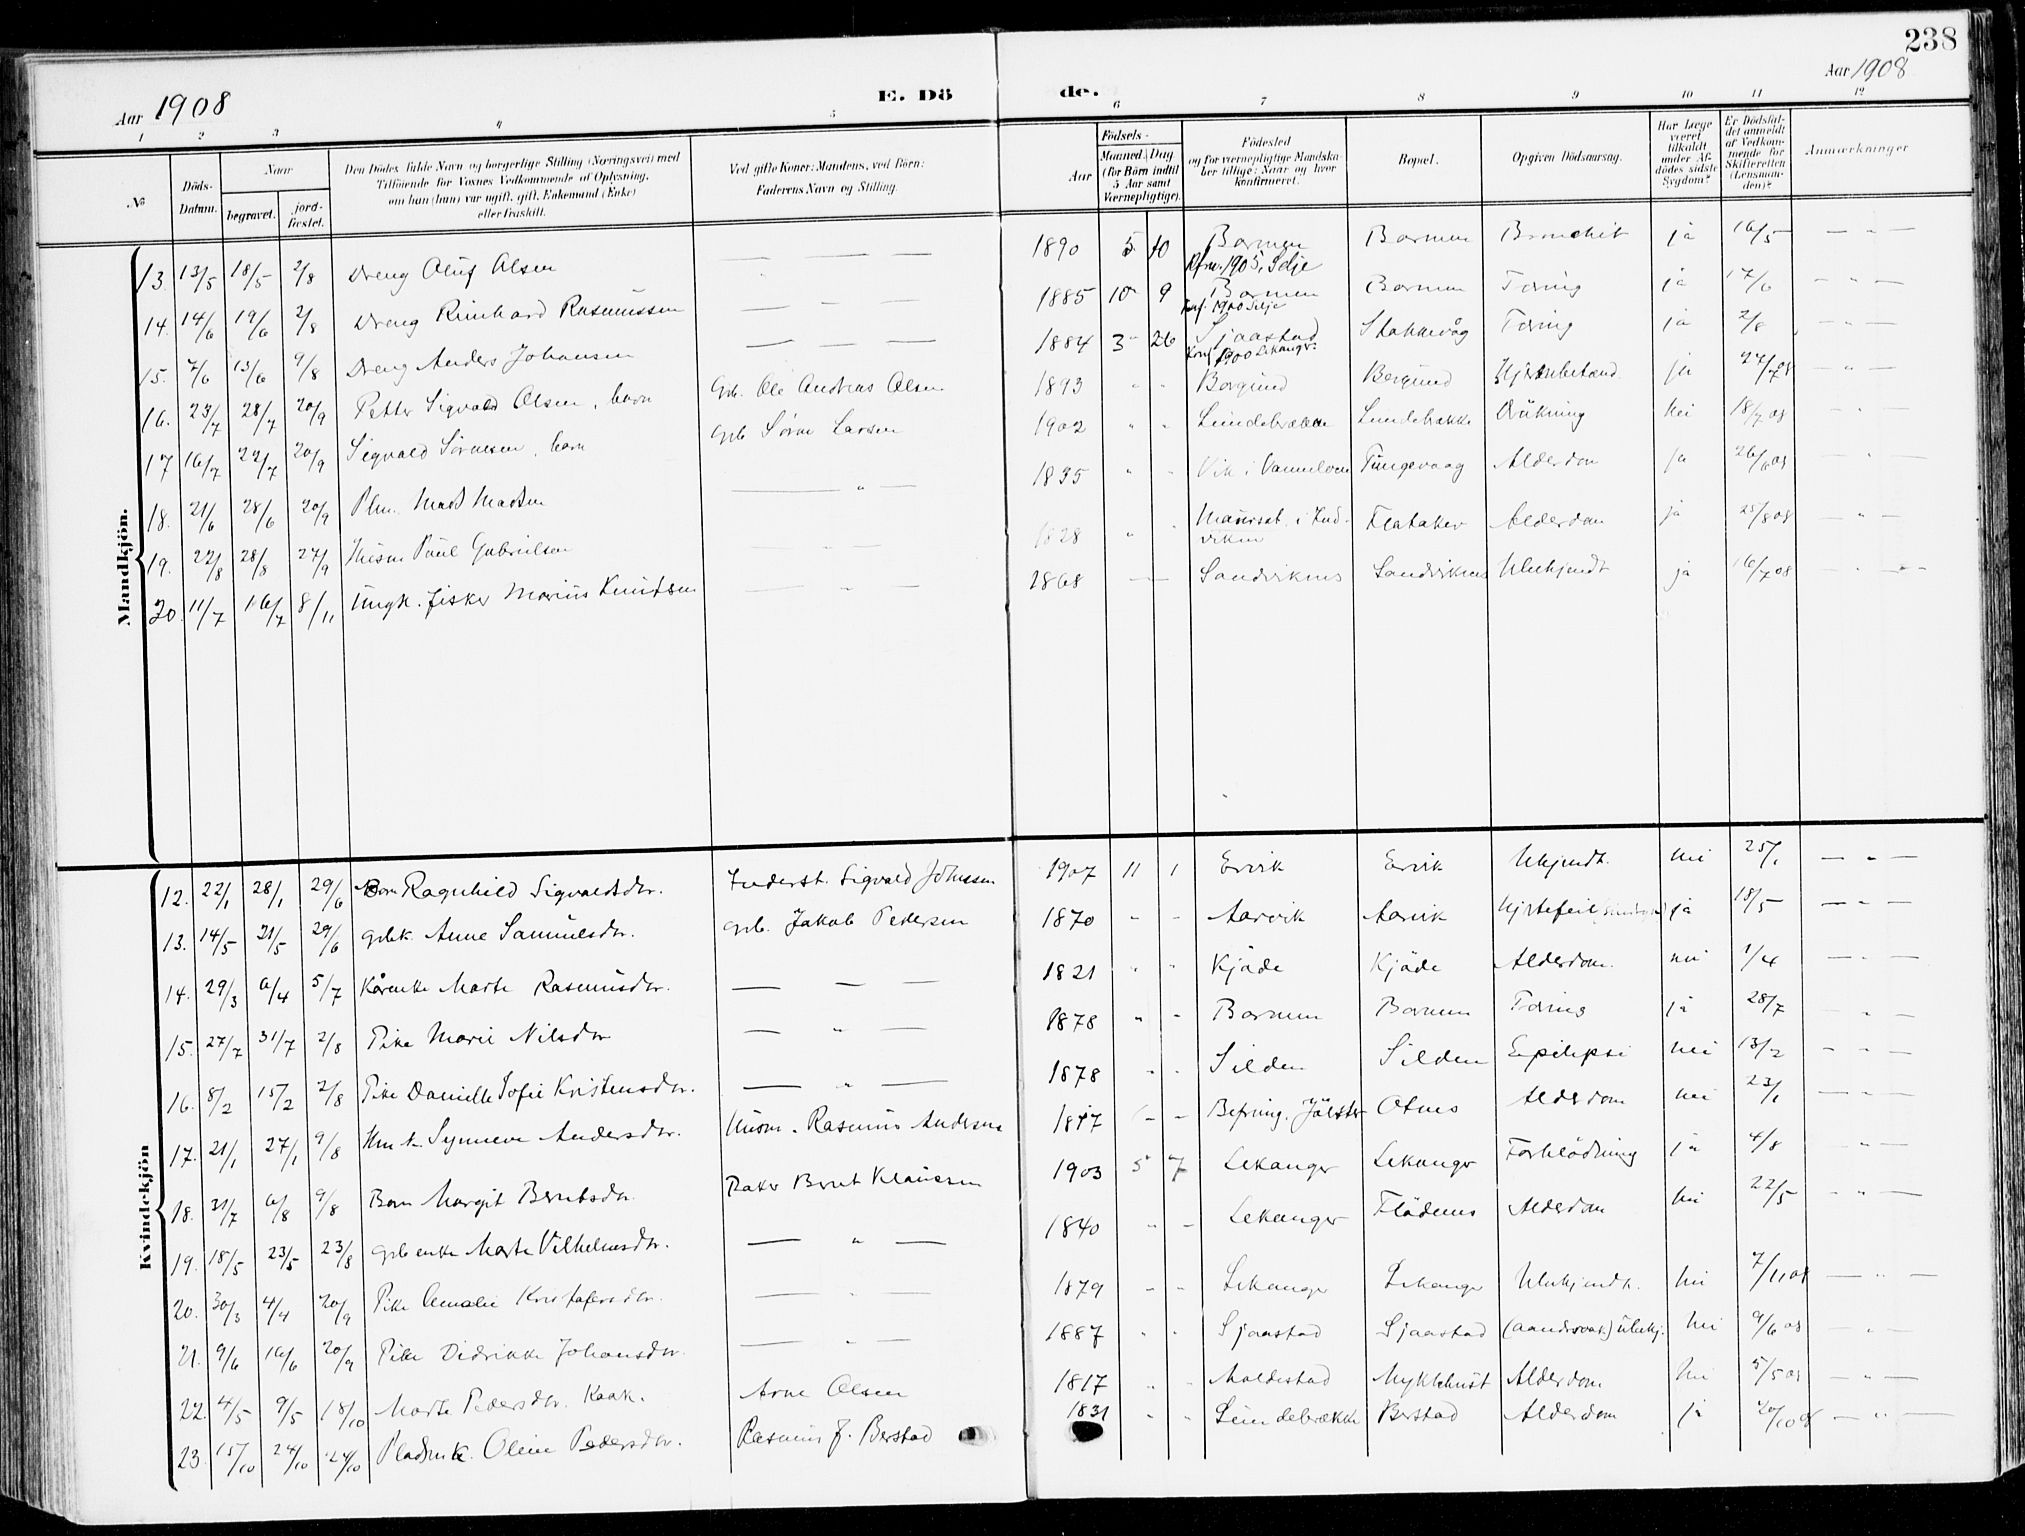 238
Aar 1908
E. Dö
de.
Aar 1908
1 2 3 4 5 6 7 8 9 10 11 12
№
Döds-Datum.
Naar
begravet.
jord-fæstet.
Den Dödes fulde Navn og borgerlige Stilling (Næringsvei) med
Tilföiende for Voxnes Vedkommende af Oplysning,
om han (hun) var ugift, gift, Enkemand (Enke)
eller fraskilt.
Ved gifte Koner: Mandens, ved Börn:
Faderens Navn og Stilling.
Födsels-
Aar
Maaned Dag
(for Börn indtil
5 Aar samt
Værnepligtige).
Födested
og for værnepligtige Mandska-
ber tillige: Naar og hvor
konfirmeret.
Bopæl.
Opgiven Dödsaarsag.
Har Læge
været
tilkaldt
under Af-
dödes sidste
Sygdom?
Er Dödsfal-
det anmeldt
af Vedkom-
mende for
Skifteretten
(Lensman-
den)?
Anmærkninger
Mandkjön.
13. 13/5 18/5 2/8 Dreng Oluf Olsen — — — 1890 5 10 Barmen Kfm. 1905, Selje Barmen Bronchit ja 16/5 — " —
14. 14/6 19/6 2/8 Dreng Reinhard Rasmussen — — — 1885 10 9 Barmen Konf. 1900 Selje Barmen Tæring ja 17/6 — " —
15. 7/6 13/6 9/8 Dreng Anders Johansen — — — 1884 3 26 Sjaastad Konf 1900 Lekanger Stokkevåg Tæring ja 2/8 — " —
16. 23/7 28/7 20/9 Petter Sigvald Olsen, barn Grb. Ole Andreas Olsen 1893 " " Borgund Borgund ja — " —
17 16/7 22/7 20/9 Sigvald Sörensen, barn Grb Sörne Larsen 1902 " " Leindebrække Leindebrække Drukning Nei 18/7 08 — " —
18. 21/6 28/6 20/9 Plm. Mads Madsen — " — 1835 " " Vik i Vannelven Tungevaag Alderdom ja 26/6 08 — " —
19. 22/8 28/8 27/9 Husm Paul Gabrielsen — " — 1828 " " Maurset i Ind-
viken Flataker Alderdom ja 25/8 08 — " —
20. 11/7 16/7 8/11 Ungk. fisker Marius Knutsen — " — 1868 — — Sandviknes Sandviknes Ubekjendt ja 16/7 08 — " —
Kvindekjön
12. 22/1 28/1 29/6 Barn Ragnhild Sigvaldsdtr. Inderst. Sigvald Johnsen 1907 11 1 Ervik Ervik Ukjendt. Nei 25/1 — " —
13. 14/5 21/5 29/6 Grbk. Anne Samuelsdtr. Grb. Jakob Pedersen 1870 " " Aarvik Aarvik Hjertefeil ja 18/5 — " —
14. 29/3 6/4 5/7 Kårenke Marte Rasmusdtr. — — — 1821 " " Kjöde Kjöde Alderdom. nei 1/4 — " —
15. 27/7 31/7 2/8 Pike Marie Nilsdtr — " — 1878 " " Barmen Barmen Tæring ja 28/7 — " —
16. 8/2 15/2 2/8 Pike Danielle Sofie Kristensdtr. — " — 1878 " " Silden Silden Epilepsi nei 13/2 — " —
17. 21/1 27/1 9/8 Hm k. Synneve Andersdtr. Husm. Rasmus Andersen 1817 — — Befring. Jölster Otnes Alderdom nei 23/1 — " —
18. 31/7 6/8 9/8 Barn Margit Berntsdtr. Baker Bernt Klausen 1903 5 7 Lekanger Lekanger Forblödning ja 4/8 — " —
19. 18/5 23/5 23/8 Grb enke Marte Vilhelmsdtr. — " — 1840 " " Lekanger Flödenes Alderdom Nei 22/5 — " —
20. 30/3 4/4 20/9 Pike Amalie Kristofersdtr. — " — 1879 " " Lekanger Lekanger Ubekjendt. Nei 7/11 08 — " —
21. 9/6 16/6 20/9 Pike Didrikke Johansdtr. — " — 1887 " " Sjaastad Sjaastad (aandssvak.) ubekj. Nei 9/6 08 — " —
22. 4/5 9/5 18/10 Marte Pedersdtr. Kaak. Arne Olsen 1817 " " Maldestad Myklebust Alderdom Nei 5/5 08 — " —
23. 15/10 24/10 24/10 Pladsmk. Oline Pedersdtr. Rasmus J. Berstad 1831 " " Leindebrække Berstad Alderdom ja 20/10 08 — " —